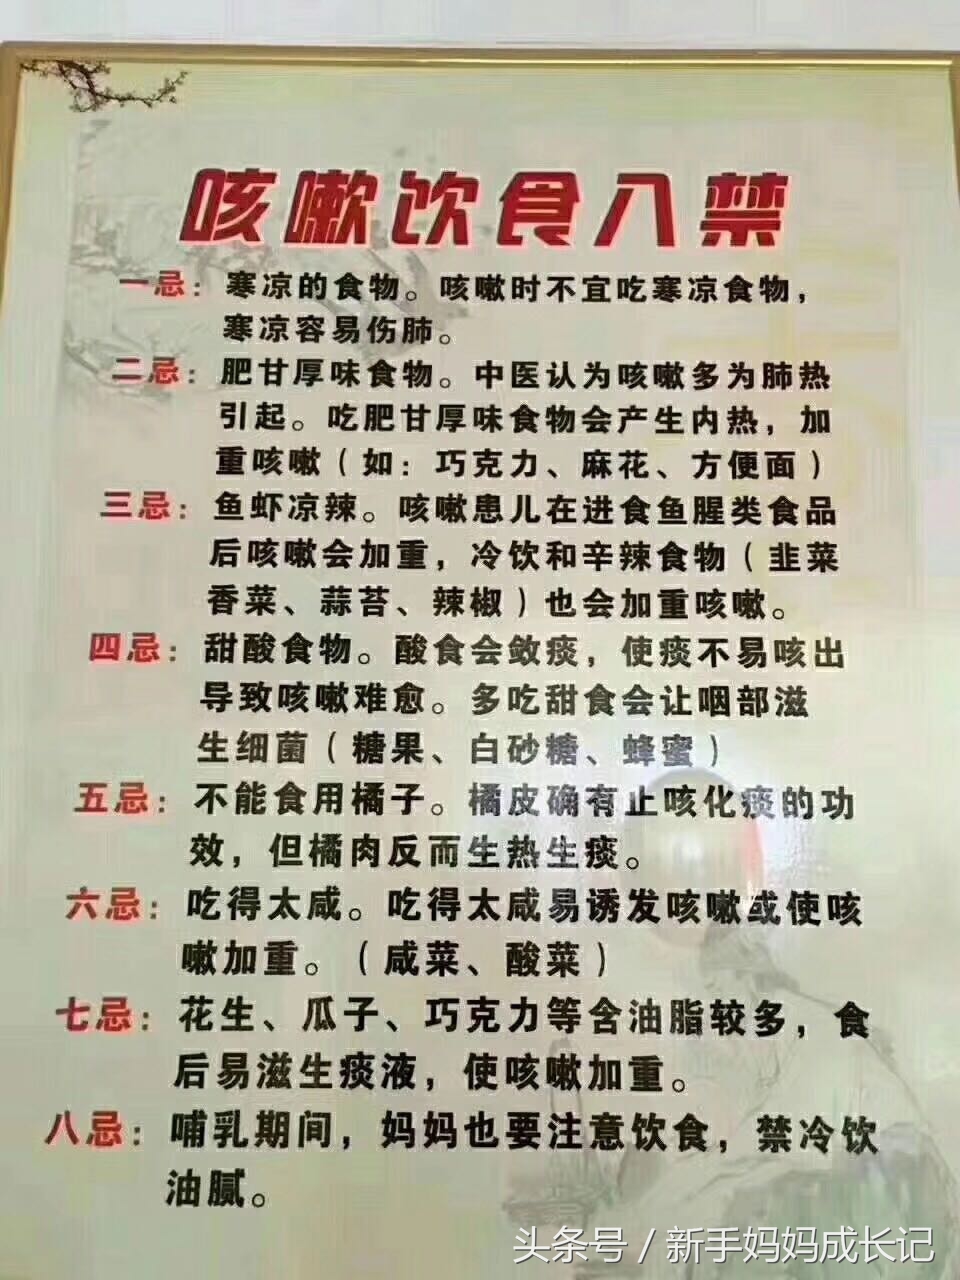 咳嗽饮食八禁
一忌：寒凉的食物。咳嗽时不宜吃寒凉食物，
寒凉容易伤肺。
二忌：肥甘厚味食物。中医认为咳嗽多为肺热
引起。吃肥甘厚味食物会产生内热，加
重咳嗽（如：巧克力、麻花、方便面）
三忌：鱼虾凉辣。咳嗽患儿在进食鱼腥类食品
后咳嗽会加重，冷饮和辛辣食物（韭菜
香菜、蒜苔、辣椒）也会加重咳嗽。
四忌：甜酸食物。酸食会敛痰，使痰不易咳出
导致咳嗽难愈。多吃甜食会让咽部滋
生细菌（糖果、白砂糖、蜂蜜）
五忌：不能食用橘子。橘皮确有止咳化痰的功
效，但橘肉反而生热生痰。
六忌：吃得太咸。吃得太咸易诱发咳嗽或使咳
嗽加重。（咸菜、酸菜）
七忌：花生、瓜子、巧克力等含油脂较多，食
后易滋生痰液，使咳嗽加重。
八忌：哺乳期间，妈妈也要注意饮食，禁冷饮
油腻。
头条号／新手妈妈成长记